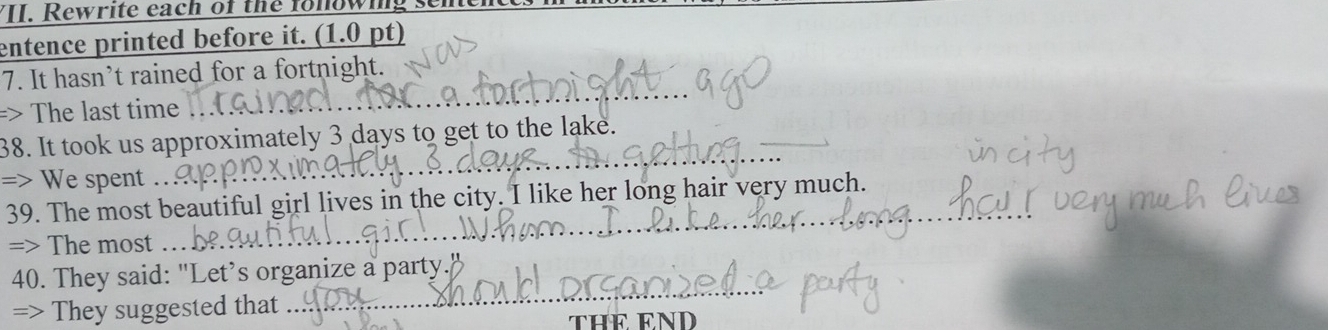 VII. Rewrite each of the following sentences in another way
entence printed before it. (1.0 pt)
7. It hasn't rained for a fortnight. was
=> The last time It rained for a fortnight ago
38. It took us approximately 3 days to get to the lake.
=> We spent approximately 3 days to getting
39. The most beautiful girl lives in the city. I like her long hair very much. in city
=> The most beautiful girl Whom I like her long hair very much lives
40. They said: "Let's organize a party."
=> They suggested that you should organized a party.
THE END